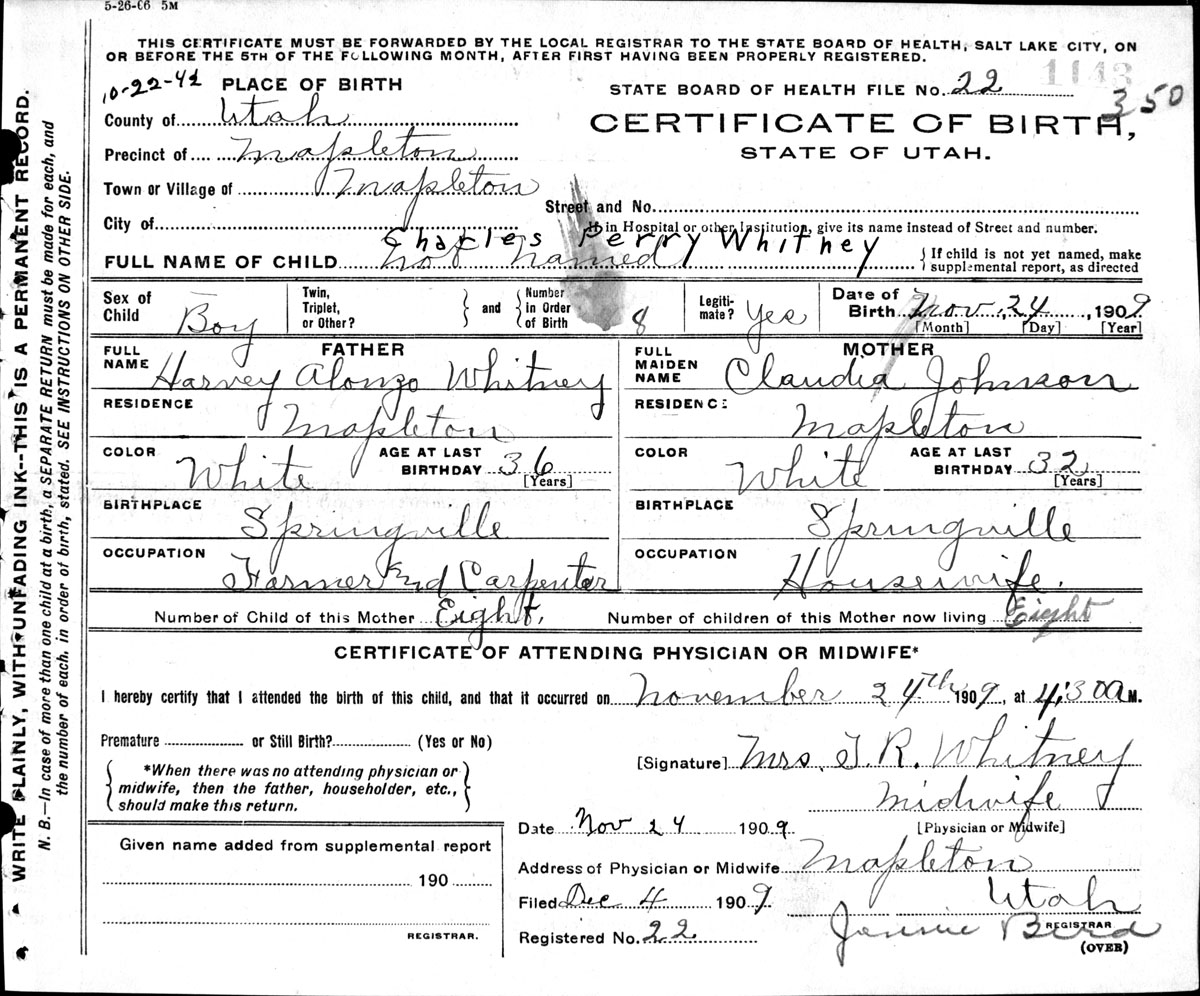 5-26-06 5M
THIS CERTIFICATE MUST BE FORWARDED BY THE LOCAL REGISTRAR TO THE STATE BOARD OF HEALTH, SALT LAKE CITY, ON
OR BEFORE THE 5TH OF THE FOLLOWING MONTH, AFTER FIRST HAVING BEEN PROPERLY REGISTERED.
1143
10-22-41 PLACE OF BIRTH
STATE BOARD OF HEALTH FILE No. 22
350
County of Utah
CERTIFICATE OF BIRTH,
Precinct of Mapleton
STATE OF UTAH.
Town or Village of Mapleton
Street and No.
City of
in Hospital or other Institution, give its name instead of Street and number.
Charles Perry Whitney
FULL NAME OF CHILD not named
If child is not yet named, make supplemental report, as directed
Sex of Child Boy
Twin, Triplet, or Other?
and Number in Order of Birth 8
Legiti-mate? Yes
Date of Birth Nov. 24, 1909
[Month] [Day] [Year]
FATHER
FULL NAME Harvey Alonzo Whitney
MOTHER
FULL MAIDEN NAME Claudia Johnson
RESIDENCE Mapleton
RESIDENCE Mapleton
COLOR White AGE AT LAST BIRTHDAY 36 [Years]
COLOR White AGE AT LAST BIRTHDAY 32 (Years)
BIRTHPLACE Springville
BIRTHPLACE Springville
OCCUPATION Farmer and Carpenter
OCCUPATION Housewife.
Number of Child of this Mother Eight. Number of children of this Mother now living Eight
CERTIFICATE OF ATTENDING PHYSICIAN OR MIDWIFE*
I hereby certify that I attended the birth of this child, and that it occurred on November 24th 1909, at 4:30 A M.
Premature or Still Birth? (Yes or No)
[Signature] Mrs. J. R. Whitney
*When there was no attending physician or
midwife, then the father, householder, etc.,
should make this return.
Midwife
[Physician or Midwife]
Date Nov 24 1909.
Given name added from supplemental report
190
REGISTRAR.
Address of Physician or Midwife Mapleton
Utah
Filed Dec 4 1909
Registered No. 22
Jennie Bird
REGISTRAR
(OVER)
WRITE PLAINLY, WITH UNFADING INK--THIS IS A PERMANENT RECORD.
N. B.—In case of more than one child at a birth, a SEPARATE RETURN must be made for each, and
the number of each, in order of birth, stated. SEE INSTRUCTIONS ON OTHER SIDE.